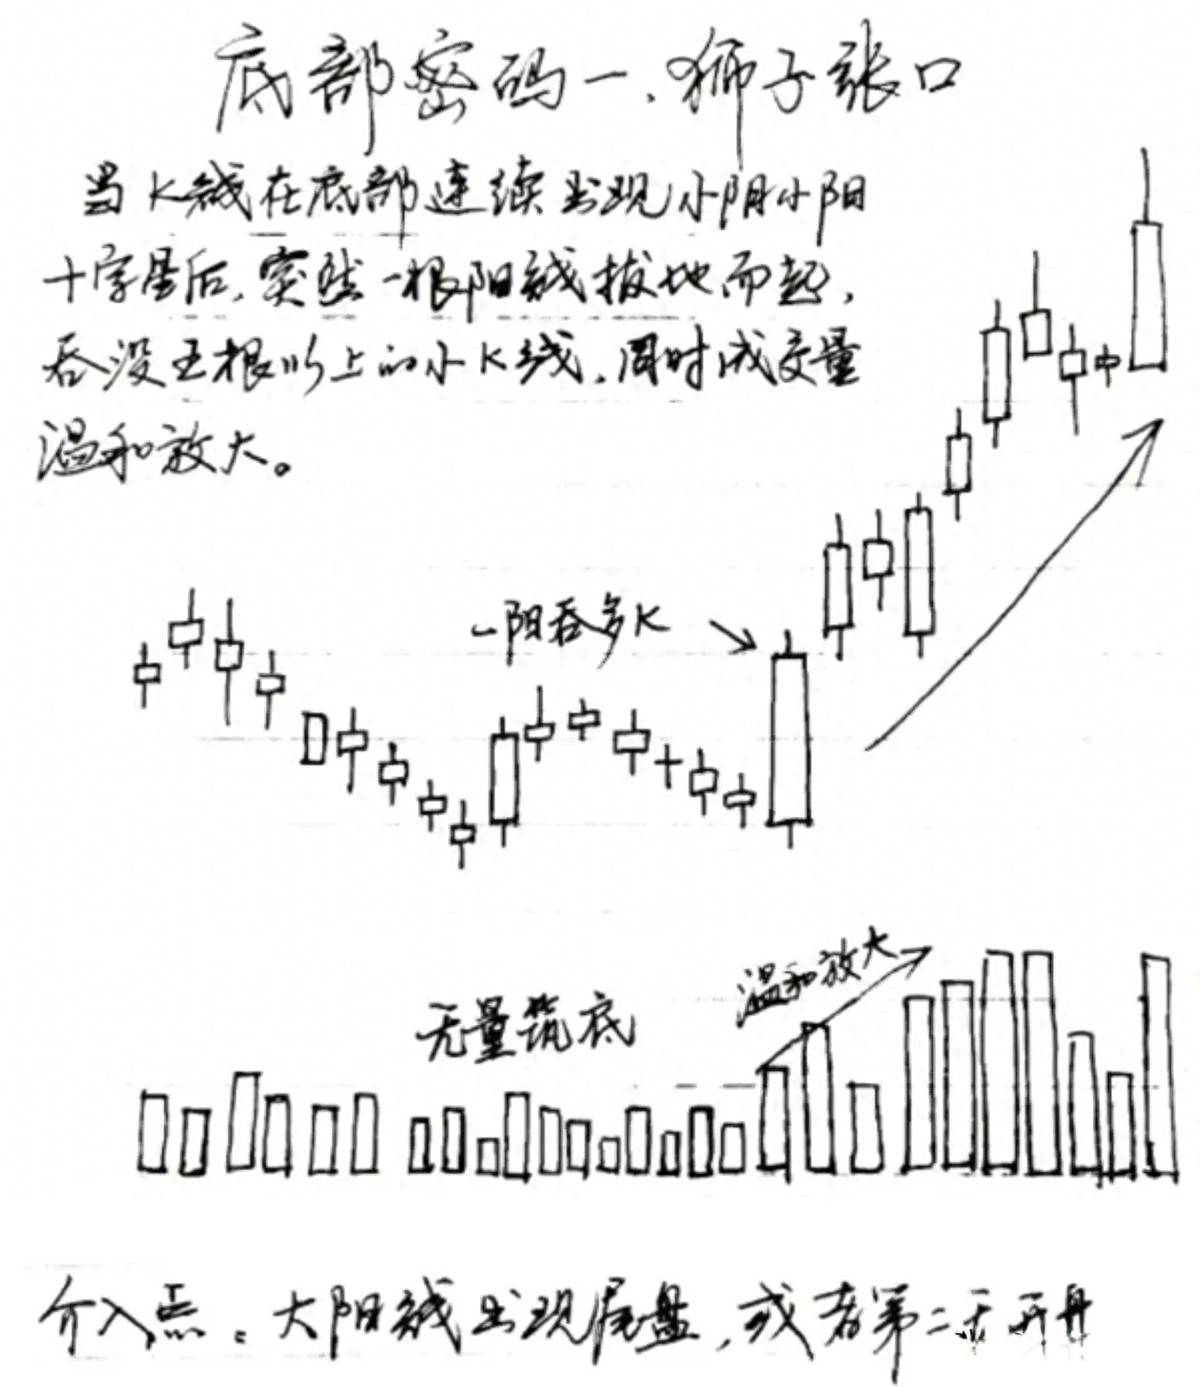 底部密码一、狮子张口
当K线在底部连续出现小阴小阳
十字星后,突然一根阳线拔地而起,
吞没五根以上的小K线,同时成交量
温和放大。
一阳吞多K
温和放大
无量筑底
介入点:大阳线出现尾盘,或者第二天开